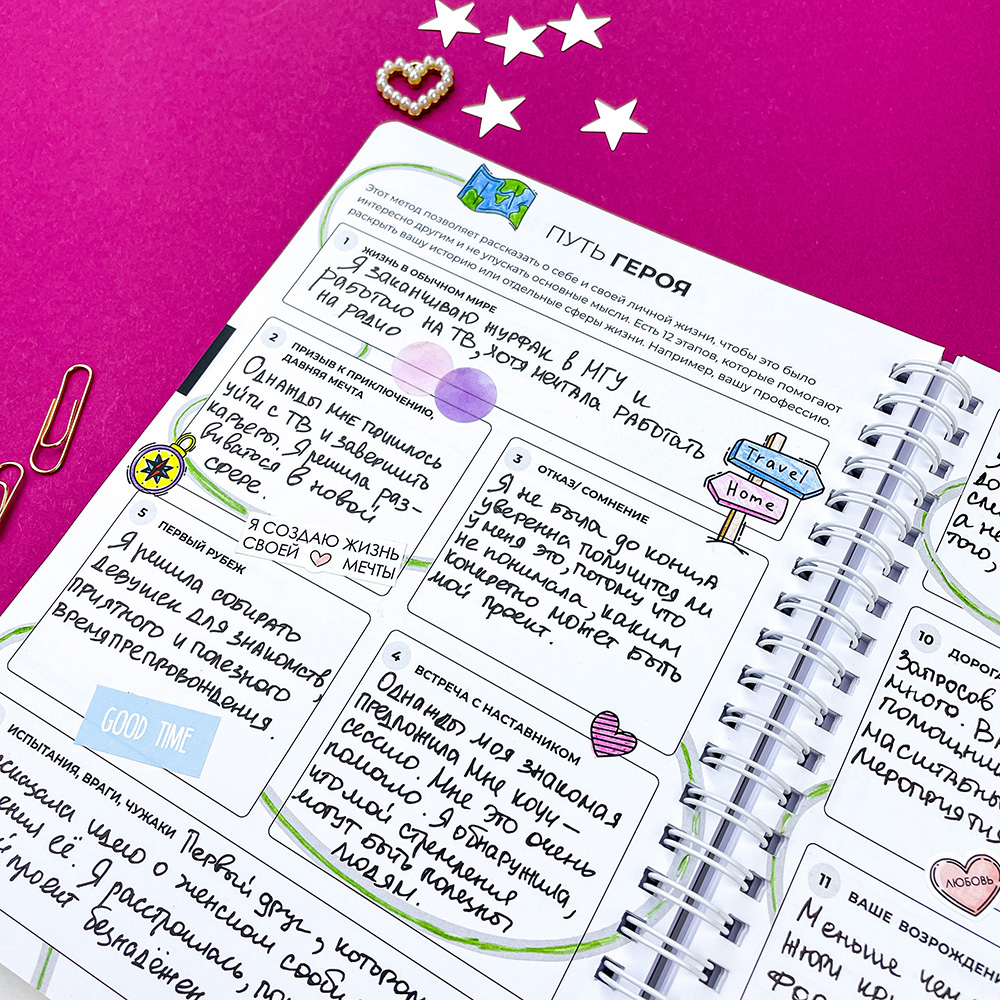 ПУТЬ ГЕРОЯ
Этот метод позволяет рассказать о себе и своей личной жизни, чтобы это было
интересно другим и не упускать основные мысли. Есть 12 этапов, которые помогают
раскрыть вашу историю или отдельные сферы жизни. Например, вашу профессию.
1 ЖИЗНЬ В ОБЫЧНОМ МИРЕ
Я заканчиваю журфак в МГУ и
работаю на ТВ, хотя мечтала работать
на радио
2 ПРИЗЫВ К ПРИКЛЮЧЕНИЮ,
ДАВНЯЯ МЕЧТА
Однажды мне пришлось
уйти с ТВ и завершить
карьеру. Я решила раз-
виваться в новой
сфере.
Travel
Home
3 ОТКАЗ/ СОМНЕНИЕ
Я не была до конца
уверенна получится ли
у меня это, потому что
не понимала, каким
конкретно может быть
мой проект.
Я СОЗДАЮ ЖИЗНЬ
СВОЕЙ МЕЧТЫ
5 ПЕРВЫЙ РУБЕЖ
Я решила собирать
девушек для знакомств,
приятного и полезного
времяпрепровождения.
GOOD TIME
4 ВСТРЕЧА С НАСТАВНИКОМ
Однажды моя знакомая
предложила мне коуч-
сессию. Мне это очень
помогло. Я обнаружила,
что мои стремления
могут быть полезны
людям.
ИСПЫТАНИЯ, ВРАГИ, ЧУЖАКИ
Первый друг, котором
идею о женском сооб
её. Я расстроилась, по
проект безнадёжен
10 ДОРОГА
Запросов
много. В
помощни
масштабн
мероприяти
ЛЮБОВЬ
11 ВАШЕ ВОЗРОЖДЕН
Меньше чем
а не
того,